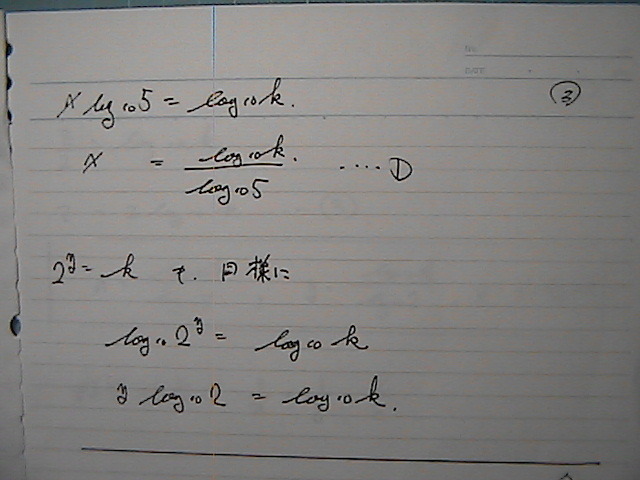 No.
DATE . .
③
x log₁₀5 = log₁₀k.
x = log₁₀k. / log₁₀5 ‥‥①
2^y = k も. 同様に
log₁₀2^y = log₁₀k
y log₁₀2 = log₁₀k.